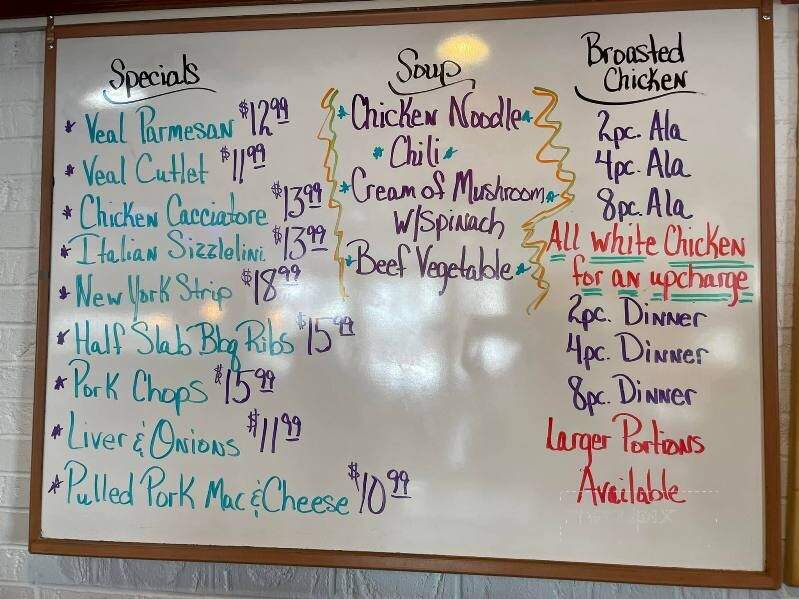 Specials
* Veal Parmesan $12.99
* Veal Cutlet $11.99
* Chicken Cacciatore $13.99
* Italian Sizzlelini $13.99
* New York Strip $18.99
* Half Slab Bbq Ribs $15.99
* Pork Chops $15.99
* Liver & Onions $11.99
* Pulled Pork Mac & Cheese $10.99
Soup
* Chicken Noodle *
* Chili *
* Cream of Mushroom *
W/Spinach
* Beef Vegetable *
Broasted
Chicken
2pc. Ala
4pc. Ala
8pc. Ala
All White Chicken
for an upcharge
2pc. Dinner
4pc. Dinner
8pc. Dinner
Larger Portions
Available